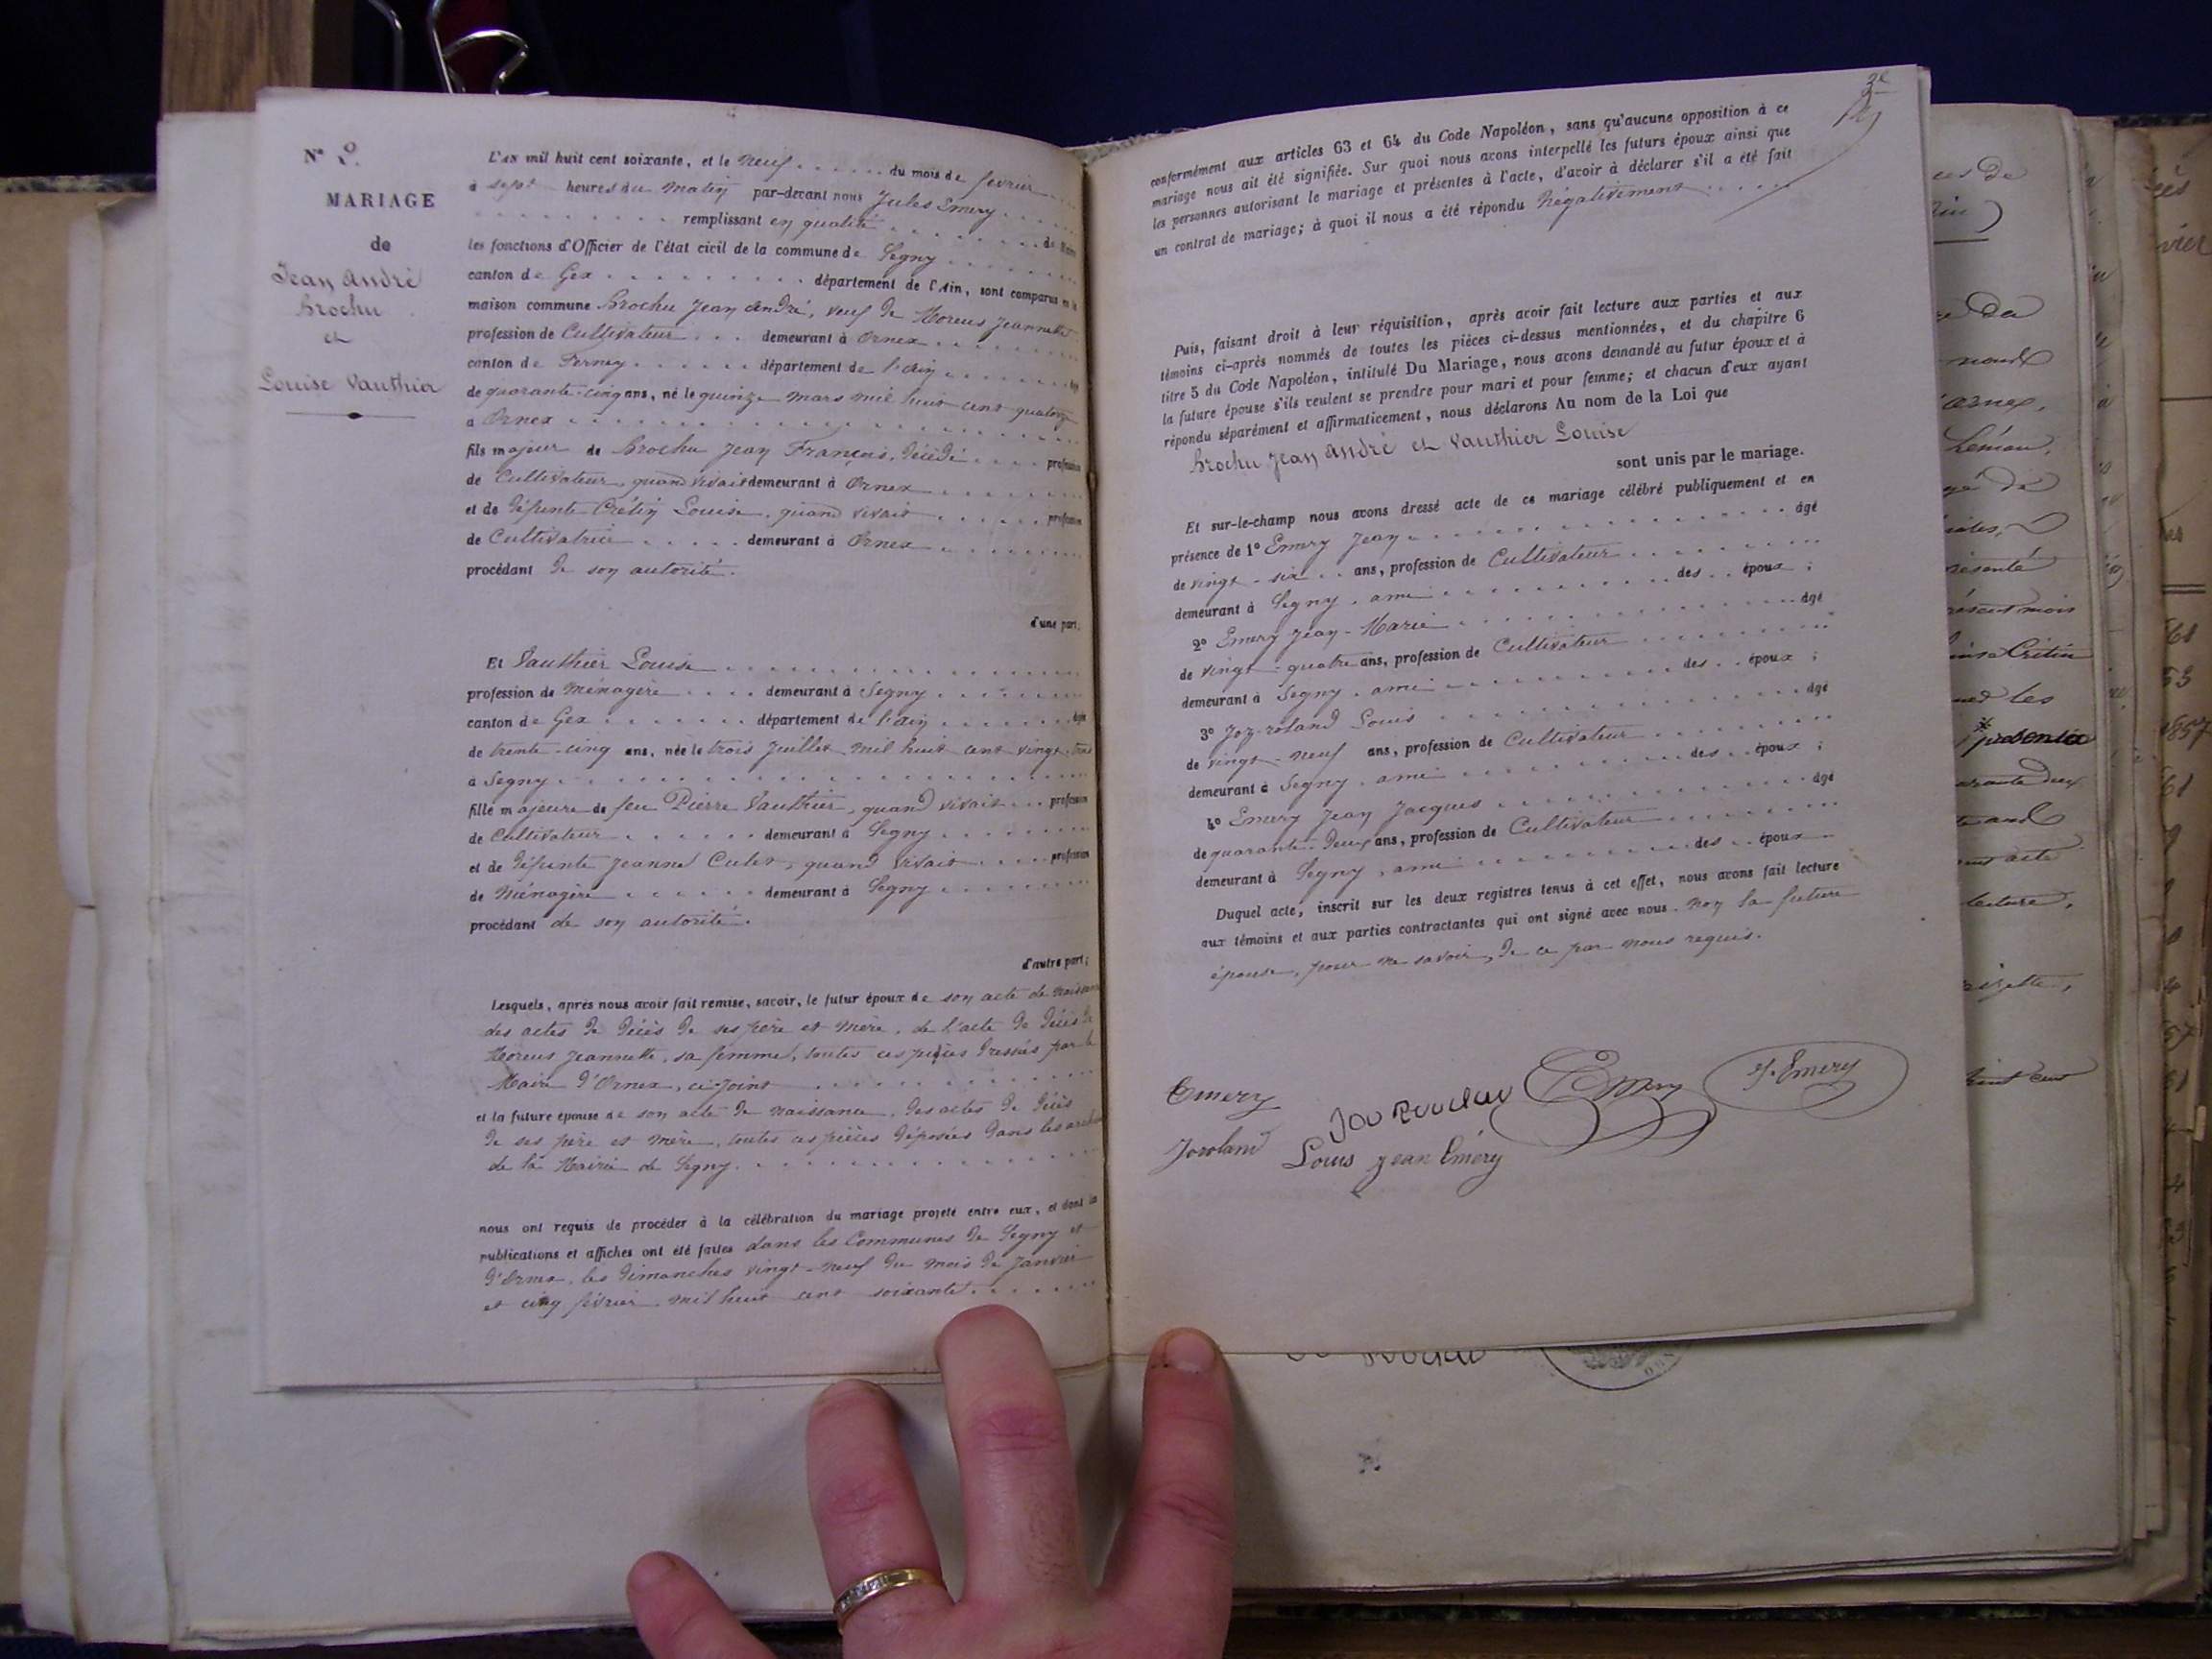 N° 2.
MARIAGE
de
Jean André
Brochu
et
Louise Vauthier
L'AN mil huit cent soixante, et le neuf du mois de février
à sept heures du matin par-devant nous Jules Emery
remplissant en qualité de Maire
les fonctions d'Officier de l'état civil de la commune de Segny
canton de Gex département de l'Ain, sont comparus en la
maison commune Brochu Jean André, veuf de Moreus Jeannette
profession de Cultivateur demeurant à Ornex
canton de Ferney département de l'ain âgé
de quarante-cinq ans, né le quinze mars mil huit cent quatorze
à Ornex
fils majeur de Brochu Jean François, décédé profession
de Cultivateur, quand vivait demeurant à Ornex
et de défunte Crétin Louise, quand vivait profession
de Cultivatrice demeurant à Ornex
procédant de son autorité.
d'une part;
Et Vauthier Louise
profession de Ménagère demeurant à Segny
canton de Gex département de l'ain âgée
de trente-cinq ans, née le trois Juillet mil huit cent vingt-trois
à Segny
fille majeure de feu Pierre Vauthier, quand vivait profession
de Cultivateur demeurant à Segny
et de défunte Jeanne Culet, quand vivait profession
de Ménagère demeurant à Segny
procédant de son autorité.
d'autre part;
Lesquels, après nous avoir fait remise, savoir, le futur époux de son acte de naissance
des actes de décès de ses père et mère, de l'acte de décès de
Moreus Jeannette, sa femme, toutes ces pièces dressées par le
Maire d'Ornex, ci-joint
et la future épouse de son acte de naissance, des actes de décès
de ses père et mère, toutes ces pièces déposées dans les archives
de la Mairie de Segny.
nous ont requis de procéder à la célébration du mariage projeté entre eux, et dont les
publications et affiches ont été faites dans les Communes de Segny et
d'Ornex, les dimanches vingt-neuf du mois de Janvier
et cinq février mil huit cent soixante.
conformément aux articles 63 et 64 du Code Napoléon, sans qu'aucune opposition à ce
mariage nous ait été signifiée. Sur quoi nous avons interpellé les futurs époux ainsi que
les personnes autorisant le mariage et présentes à l'acte, d'avoir à déclarer s'il a été fait
un contrat de mariage; à quoi il nous a été répondu Négativement
Puis, faisant droit à leur réquisition, après avoir fait lecture aux parties et aux
témoins ci-après nommés de toutes les pièces ci-dessus mentionnées, et du chapitre 6
titre 5 du Code Napoléon, intitulé Du Mariage, nous avons demandé au futur époux et à
la future épouse s'ils veulent se prendre pour mari et pour femme; et chacun d'eux ayant
répondu séparément et affirmativement, nous déclarons Au nom de la Loi que
Brochu Jean André et Vauthier Louise
sont unis par le mariage.
Et sur-le-champ nous avons dressé acte de ce mariage célébré publiquement et en
présence de 1° Emery Jean âgé
de vingt-six ans, profession de Cultivateur
demeurant à Segny, ami des époux;
2° Emery Jean-Marie âgé
de vingt-quatre ans, profession de Cultivateur
demeurant à Segny, ami des époux;
3° Joz-roland Louis âgé
de vingt-neuf ans, profession de Cultivateur
demeurant à Segny, ami des époux;
4° Emery Jean Jacques âgé
de quarante-deux ans, profession de Cultivateur
demeurant à Segny, ami des époux
Duquel acte, inscrit sur les deux registres tenus à cet effet, nous avons fait lecture
aux témoins et aux parties contractantes qui ont signé avec nous. Non la future
épouse, pour ne savoir, de ce par nous requis.
Emery
Emery
J. Emery
Louis Jean Emery